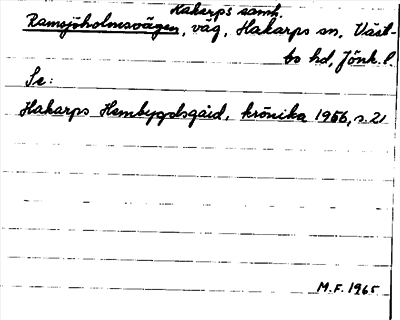 Hakarps samh.
Ramsjöholmsvägen, väg, Hakarps sn, Väst-
bo hd, Jönk. l.
Se:
Hakarps Hembygdsgård, krönika 1956, s. 21
M.F. 1965